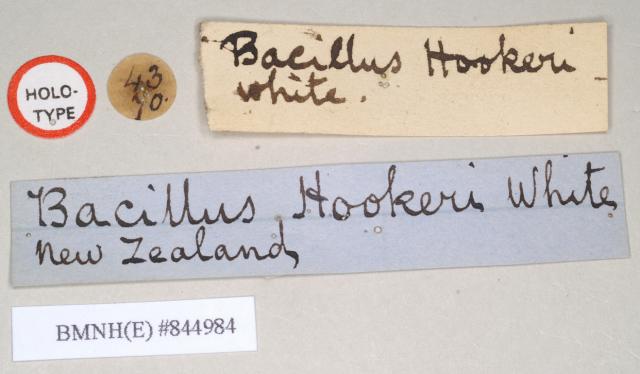 HOLO-
TYPE
43
70.
Bacillus Hookeri
White.
Bacillus Hookeri White
New Zealand
BMNH(E) #844984